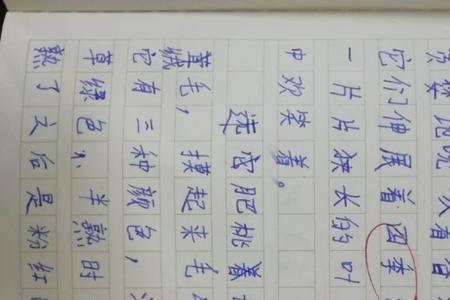 它们伸展着四季
一片片狭长的叶
中欢笑着。
肥桃
茸绒毛，摸起来毛
它有三种颜色，
草绿色，半熟时
熟了之后是粉红